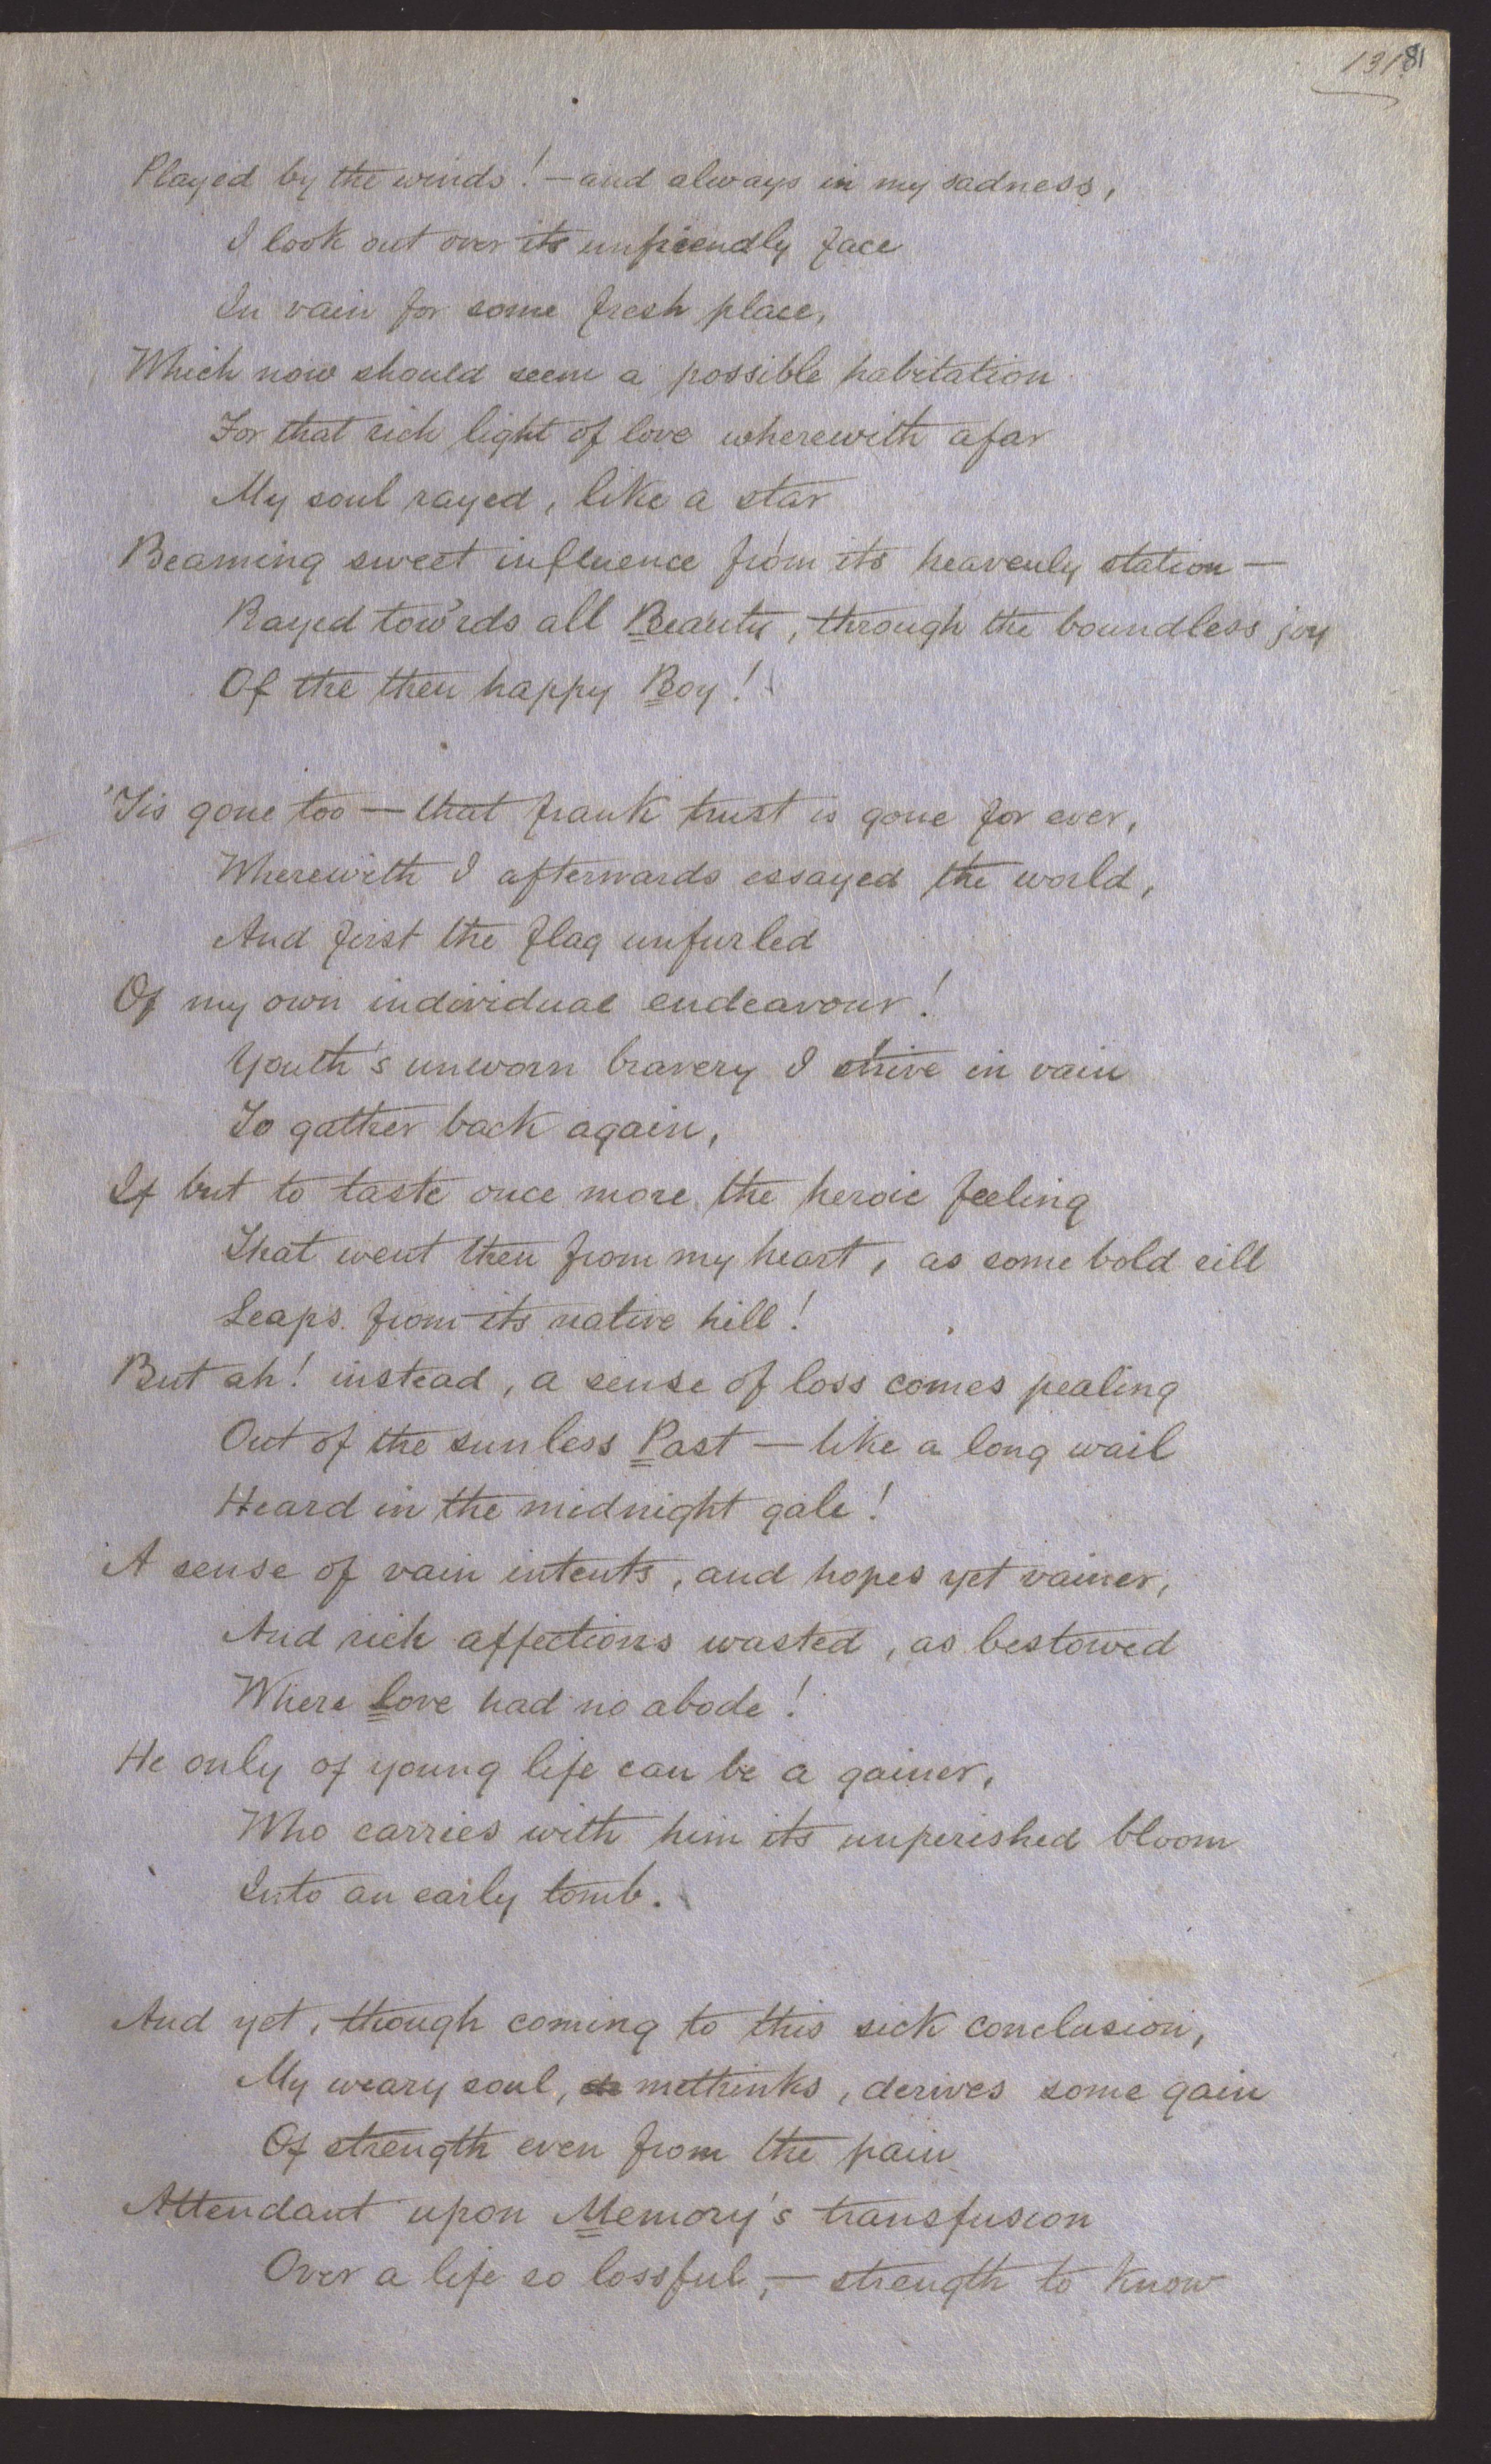 131 81
Played by the winds! — and always in my sadness,
I look out over its unfriendly face
In vain for some fresh place,
Which now should seem a possible habitation
For that rich light of love wherewith afar
My soul rayed, like a star
Beaming sweet influence from its heavenly station —
Rayed tow'rds all Beauty, through the boundless joy
Of the then happy Boy!
'Tis gone too — that frank trust is gone for ever,
Wherewith I afterwards essayed the world,
And first the flag unfurled
Of my own individual endeavour!
Youth's unworn bravery I strive in vain
To gather back again,
If but to taste once more the heroic feeling
That went then from my heart, as some bold rill
Leaps from its native hill!
But ah! instead, a sense of loss comes pealing
Out of the sunless Past — like a long wail
Heard in the midnight gale!
A sense of vain intents, and hopes yet vainer,
And rich affections wasted, as bestowed
Where Love had no abode!
He only of young life can be a gainer,
Who carries with him its unperished bloom
Into an early tomb.
And yet, though coming to this sick conclusion,
My weary soul, methinks, derives some gain
Of strength even from the pain
Attendant upon Memory's transfusion
Over a life so lossful, — strength to know